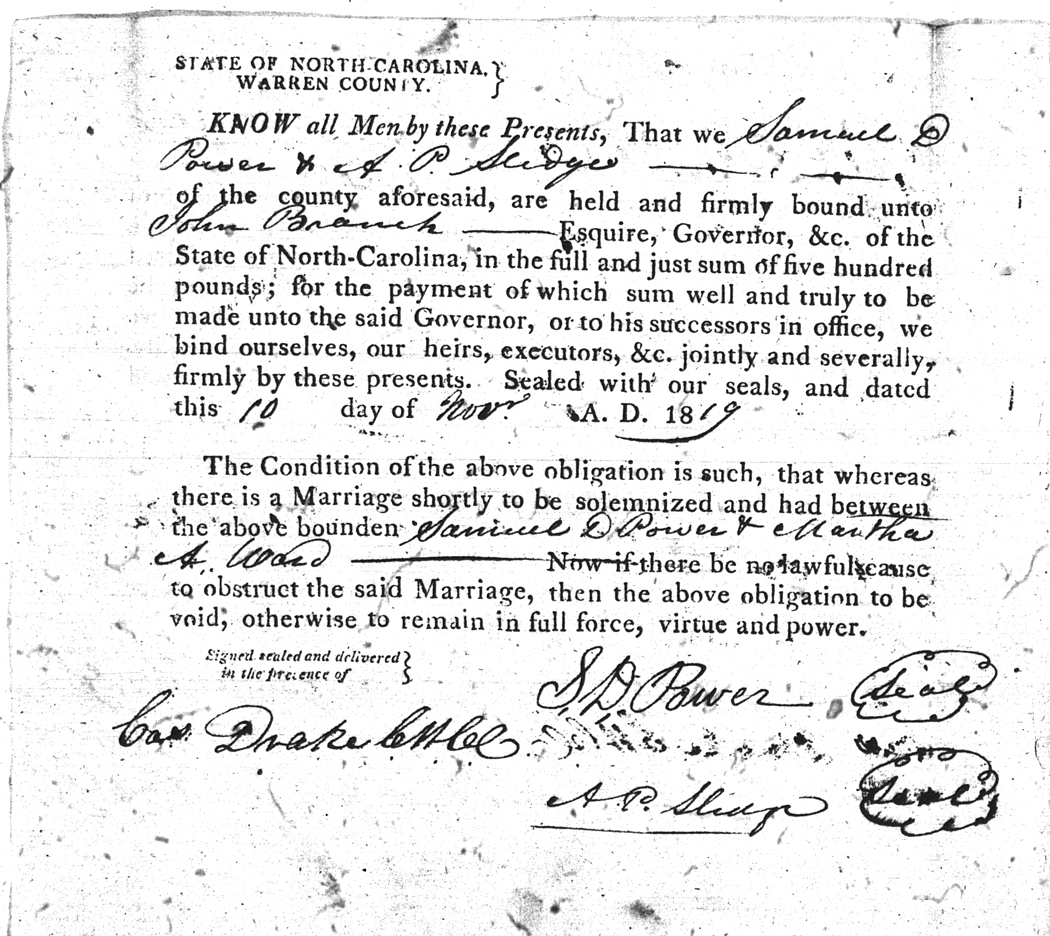 STATE OF NORTH-CAROLINA, }
WARREN COUNTY.
KNOW all Men by these Presents, That we Samuel D
Power & A. P. Sledge
of the county aforesaid, are held and firmly bound unto
John Branch Esquire, Governor, &c. of the
State of North-Carolina, in the full and just sum of five hundred
pounds; for the payment of which sum well and truly to be
made unto the said Governor, or to his successors in office, we
bind ourselves, our heirs, executors, &c. jointly and severally,
firmly by these presents. Sealed with our seals, and dated
this 10 day of Novr. A. D. 1819
The Condition of the above obligation is such, that whereas
there is a Marriage shortly to be solemnized and had between
the above bounden Samuel D Power & Martha
A. Ward Now if there be no lawful cause
to obstruct the said Marriage, then the above obligation to be
void; otherwise to remain in full force, virtue and power.
Signed sealed and delivered }
in the presence of
S. D. Power Seal
Cas Drake
A. P. Sledge Seal